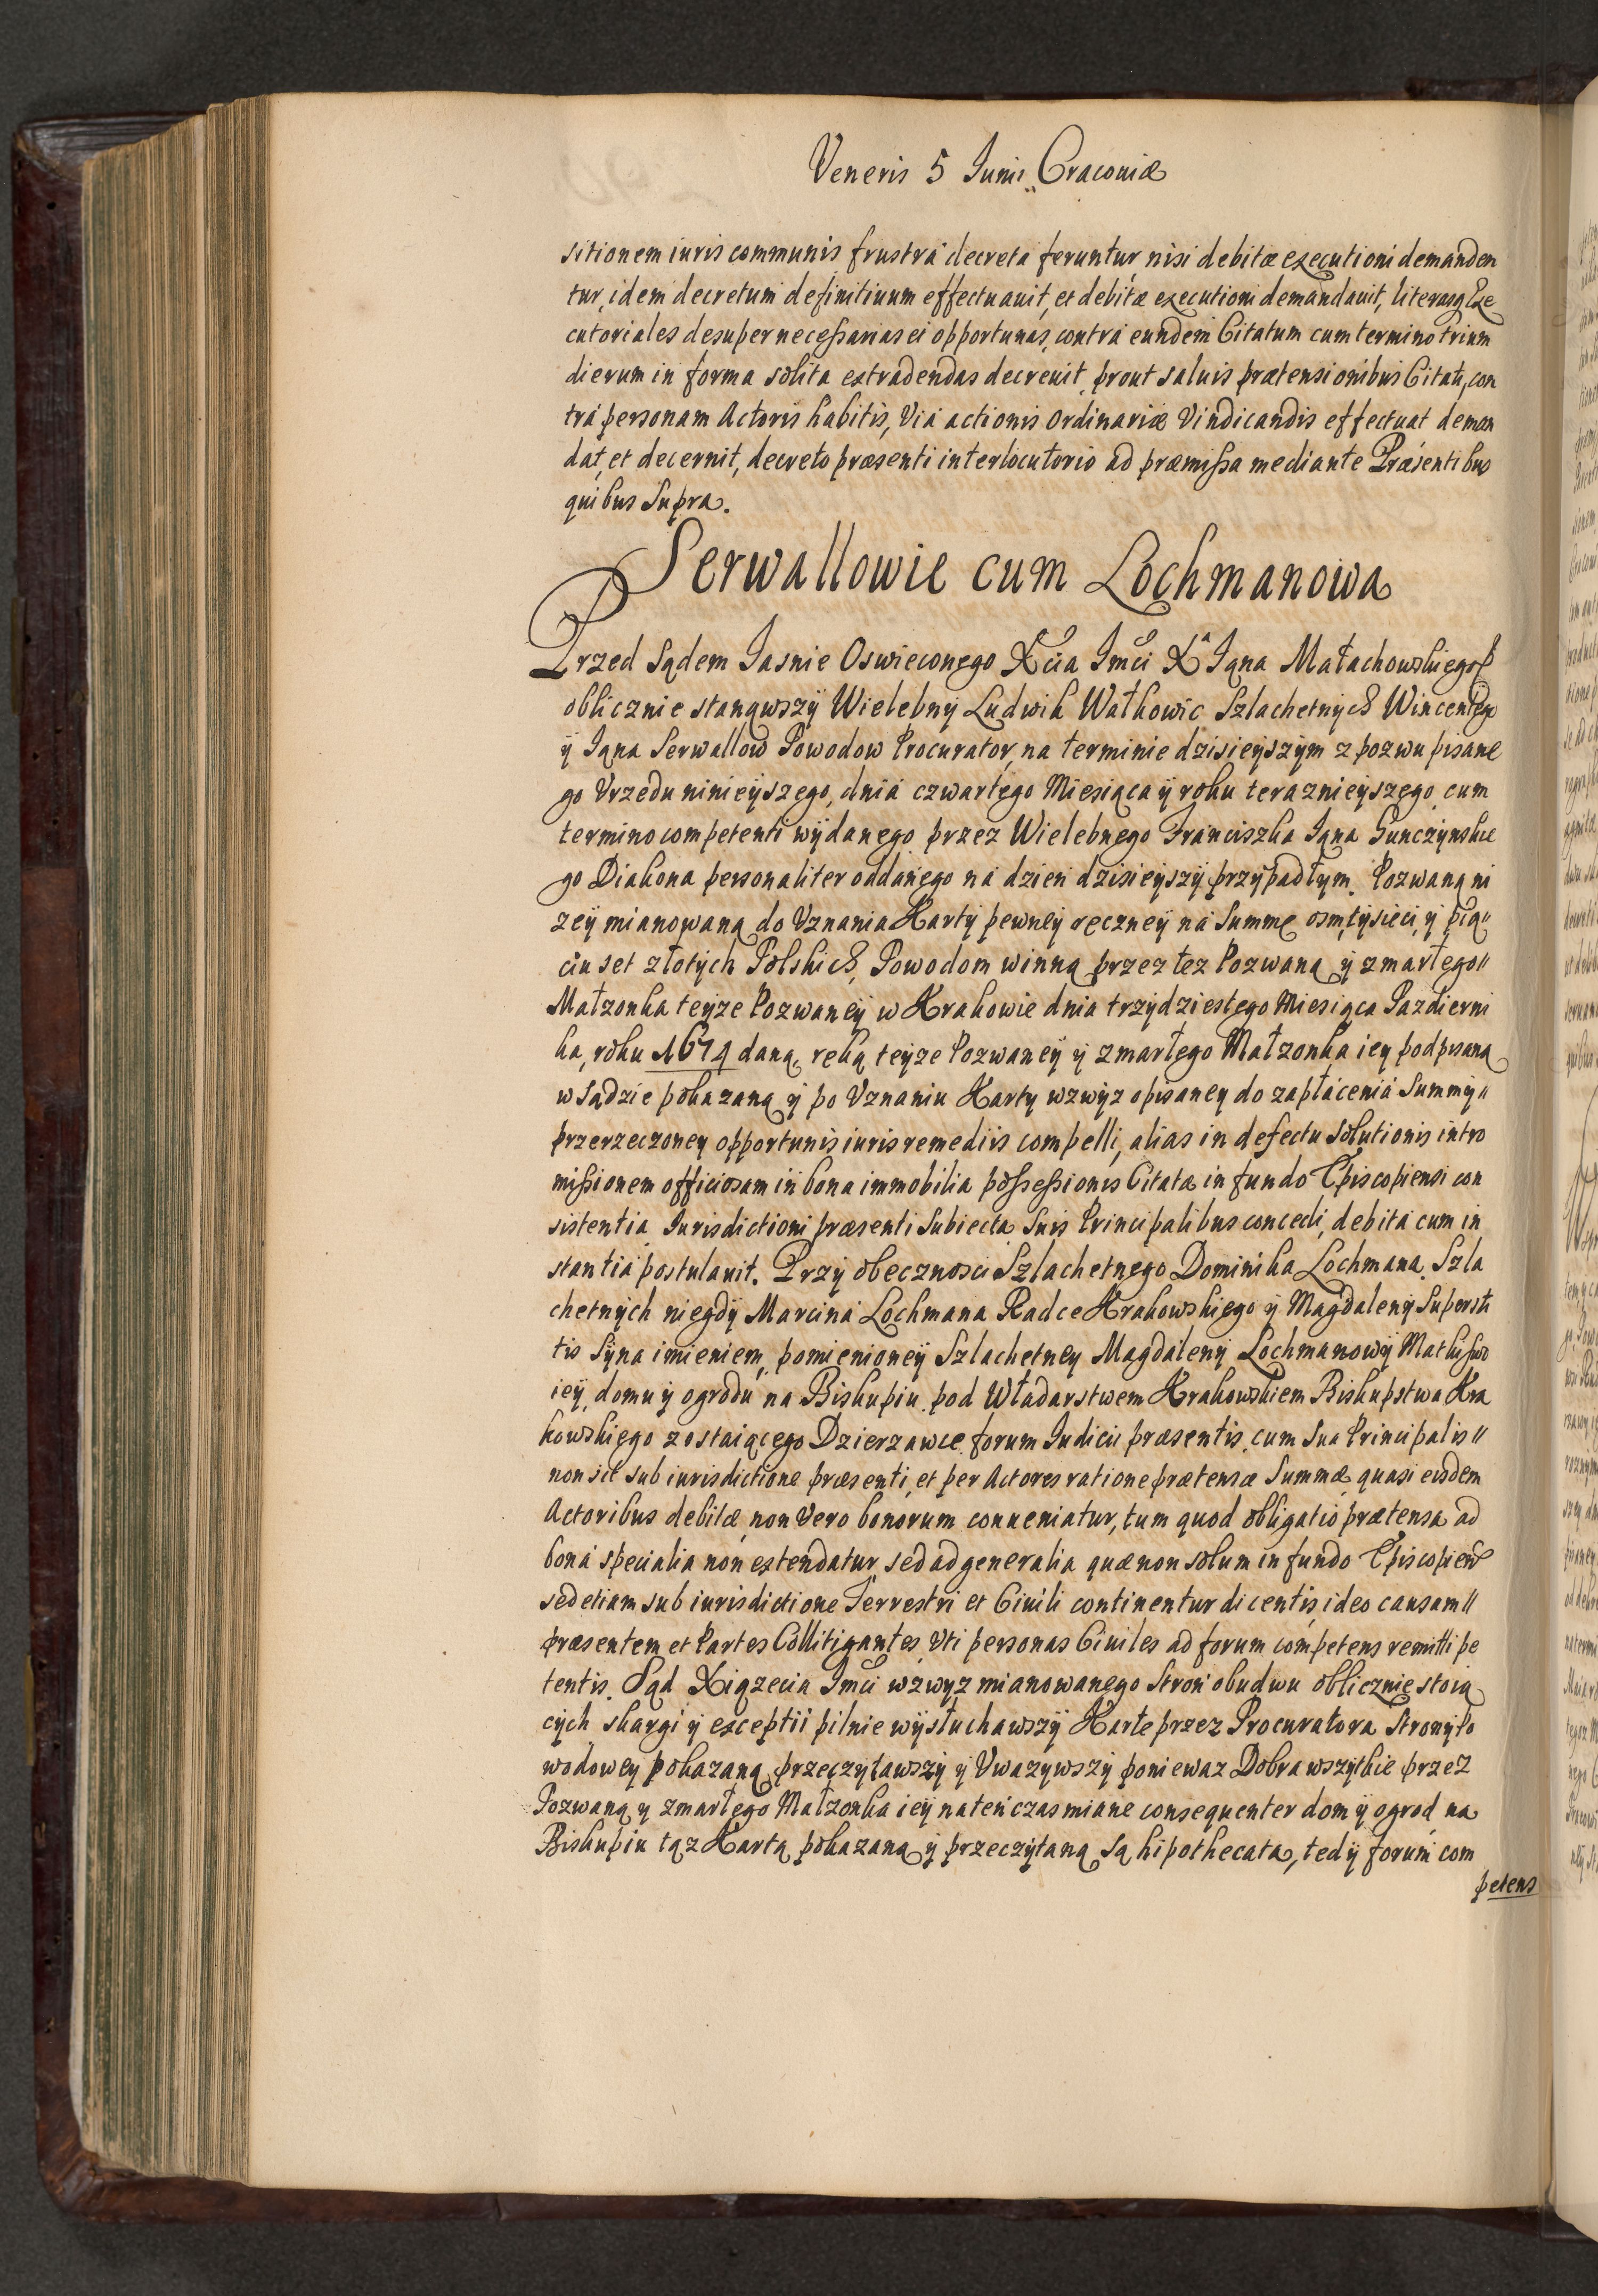 Veneris 5 Iunii Cracoviæ
sitionem iuris communis frustra decreta feruntur, nisi debitæ executioni demanden
tur, idem decretum definitiuum effectuauit, et debitæ executioni demandauit, literasq Exe
cutoriales desuper necessarias ei opportunas, contra eundem Citatum cum termino trium
dierum in forma solita extradendas decreuit, prout saluis prætensionibus Citati, con
tra personam Actoris habitis, Via actionis ordinariæ Vindicandis effectuat deman
dat, et decernit, decreto præsenti interlocutorio ad præmissa mediante Præsentibus
quibus Supra.
Serwallowie cum Lochmanowa
Przed Sądem Iasnie Oswieconego Xcia Imci X Iana Małachowskiego
oblicznie stanąwszÿ Wielebny Ludwik Wałkowic Szlachetnych Wincentego
ÿ Iana Serwallow Powodow Procurator, na terminie dzisieÿszÿm z pozwu pisane
go Vrzedu ninieÿszego, dnia czwartego Miesiąca ÿ roku teraznieÿszego cum
termino competenti wÿdanego przez Wielebnego Franciszka Iana Gunczynskie
go Diakona personaliter oddanego na dzien dzisieÿszÿ przÿpadłÿm. Pozwaną ni
zeÿ mianowaną do Vznania Kartÿ pewneÿ ręczneÿ na Summę osmtÿsieci ÿ pię"
ciu set złotÿch Polskich, Powodom winną przez tez Pozwaną ÿ zmarłego"
Małzonka teÿze Pozwaneÿ w Krakowie dnia trzÿdziestego Miesiąca Pazdierni
ka, roku 1674 daną, ręką teÿze Pozwaneÿ ÿ zmarłego Małzonka iey podpisaną
w Sądzie pokazaną ÿ po Vznaniu Karty wzwÿz opisaney do zapłacenia Summÿ"
przerzeczoney opportunis iuris remediis compelli, alias in defectu Solutionis intro
missionem officiosam in bona immobilia possessionis Citatæ in fundo Episcopiensi con
sistentia Iurisdictioni præsenti Subiecta Suis Principalibus concedi, debita cum in
stantia postulauit. Przÿ obecznosci Szlachetnego Dominika Lochmana, Szla
chetnÿch niegdÿ Marcina Lochmana Radce Krakowskiego ÿ Magdalenÿ Supersti
tis Sÿna imieniem, pomienioneÿ Szlachetney Magdaleny Lochmanowÿ Matki swo
ieÿ, domu ÿ ogrodu na Biskupiu pod Władarstwem Krakowskiem Biskupstwa Kra
kowskiego zostaiącego Dzierzawce forum Iudicii præsentis, cum Sua Principalis"
non sit sub iurisdictione præsenti, et per Actores ratione prætensæ Summæ quasi eisdem
Actoribus debitæ, non Vero bonorum conueniatur, tum quod obligatio prætensa ad
bona specialia non extendatur, sed ad generalia quæ non solum in fundo Episcopien
sed etiam sub iurisdictione Terrestri et Ciuili continentur dicentis, ideo causam"
præsentem et Partes Collitigantes, Vti personas Ciuiles ad forum competens remitti pe
tentis. Sąd Xiązecia Imci wzwyz mianowanego Stron obudwu oblicznie stoią
cÿch skargi ÿ exceptii pilnie wÿsłuchawszÿ Karte przez Procuratora Stronÿ Po
wodowey pokazaną przeczÿtawszÿ ÿ Vwazÿwszÿ poniewaz Dobra wszytkie przez
Pozwaną ÿ zmarłego Małzonka ieÿ natenczas miane consequenter dom ÿ ogrod na
Biskupiu tąz Kartą pokazaną ÿ przeczÿtaną są hipothecata, tedÿ forum com
petens